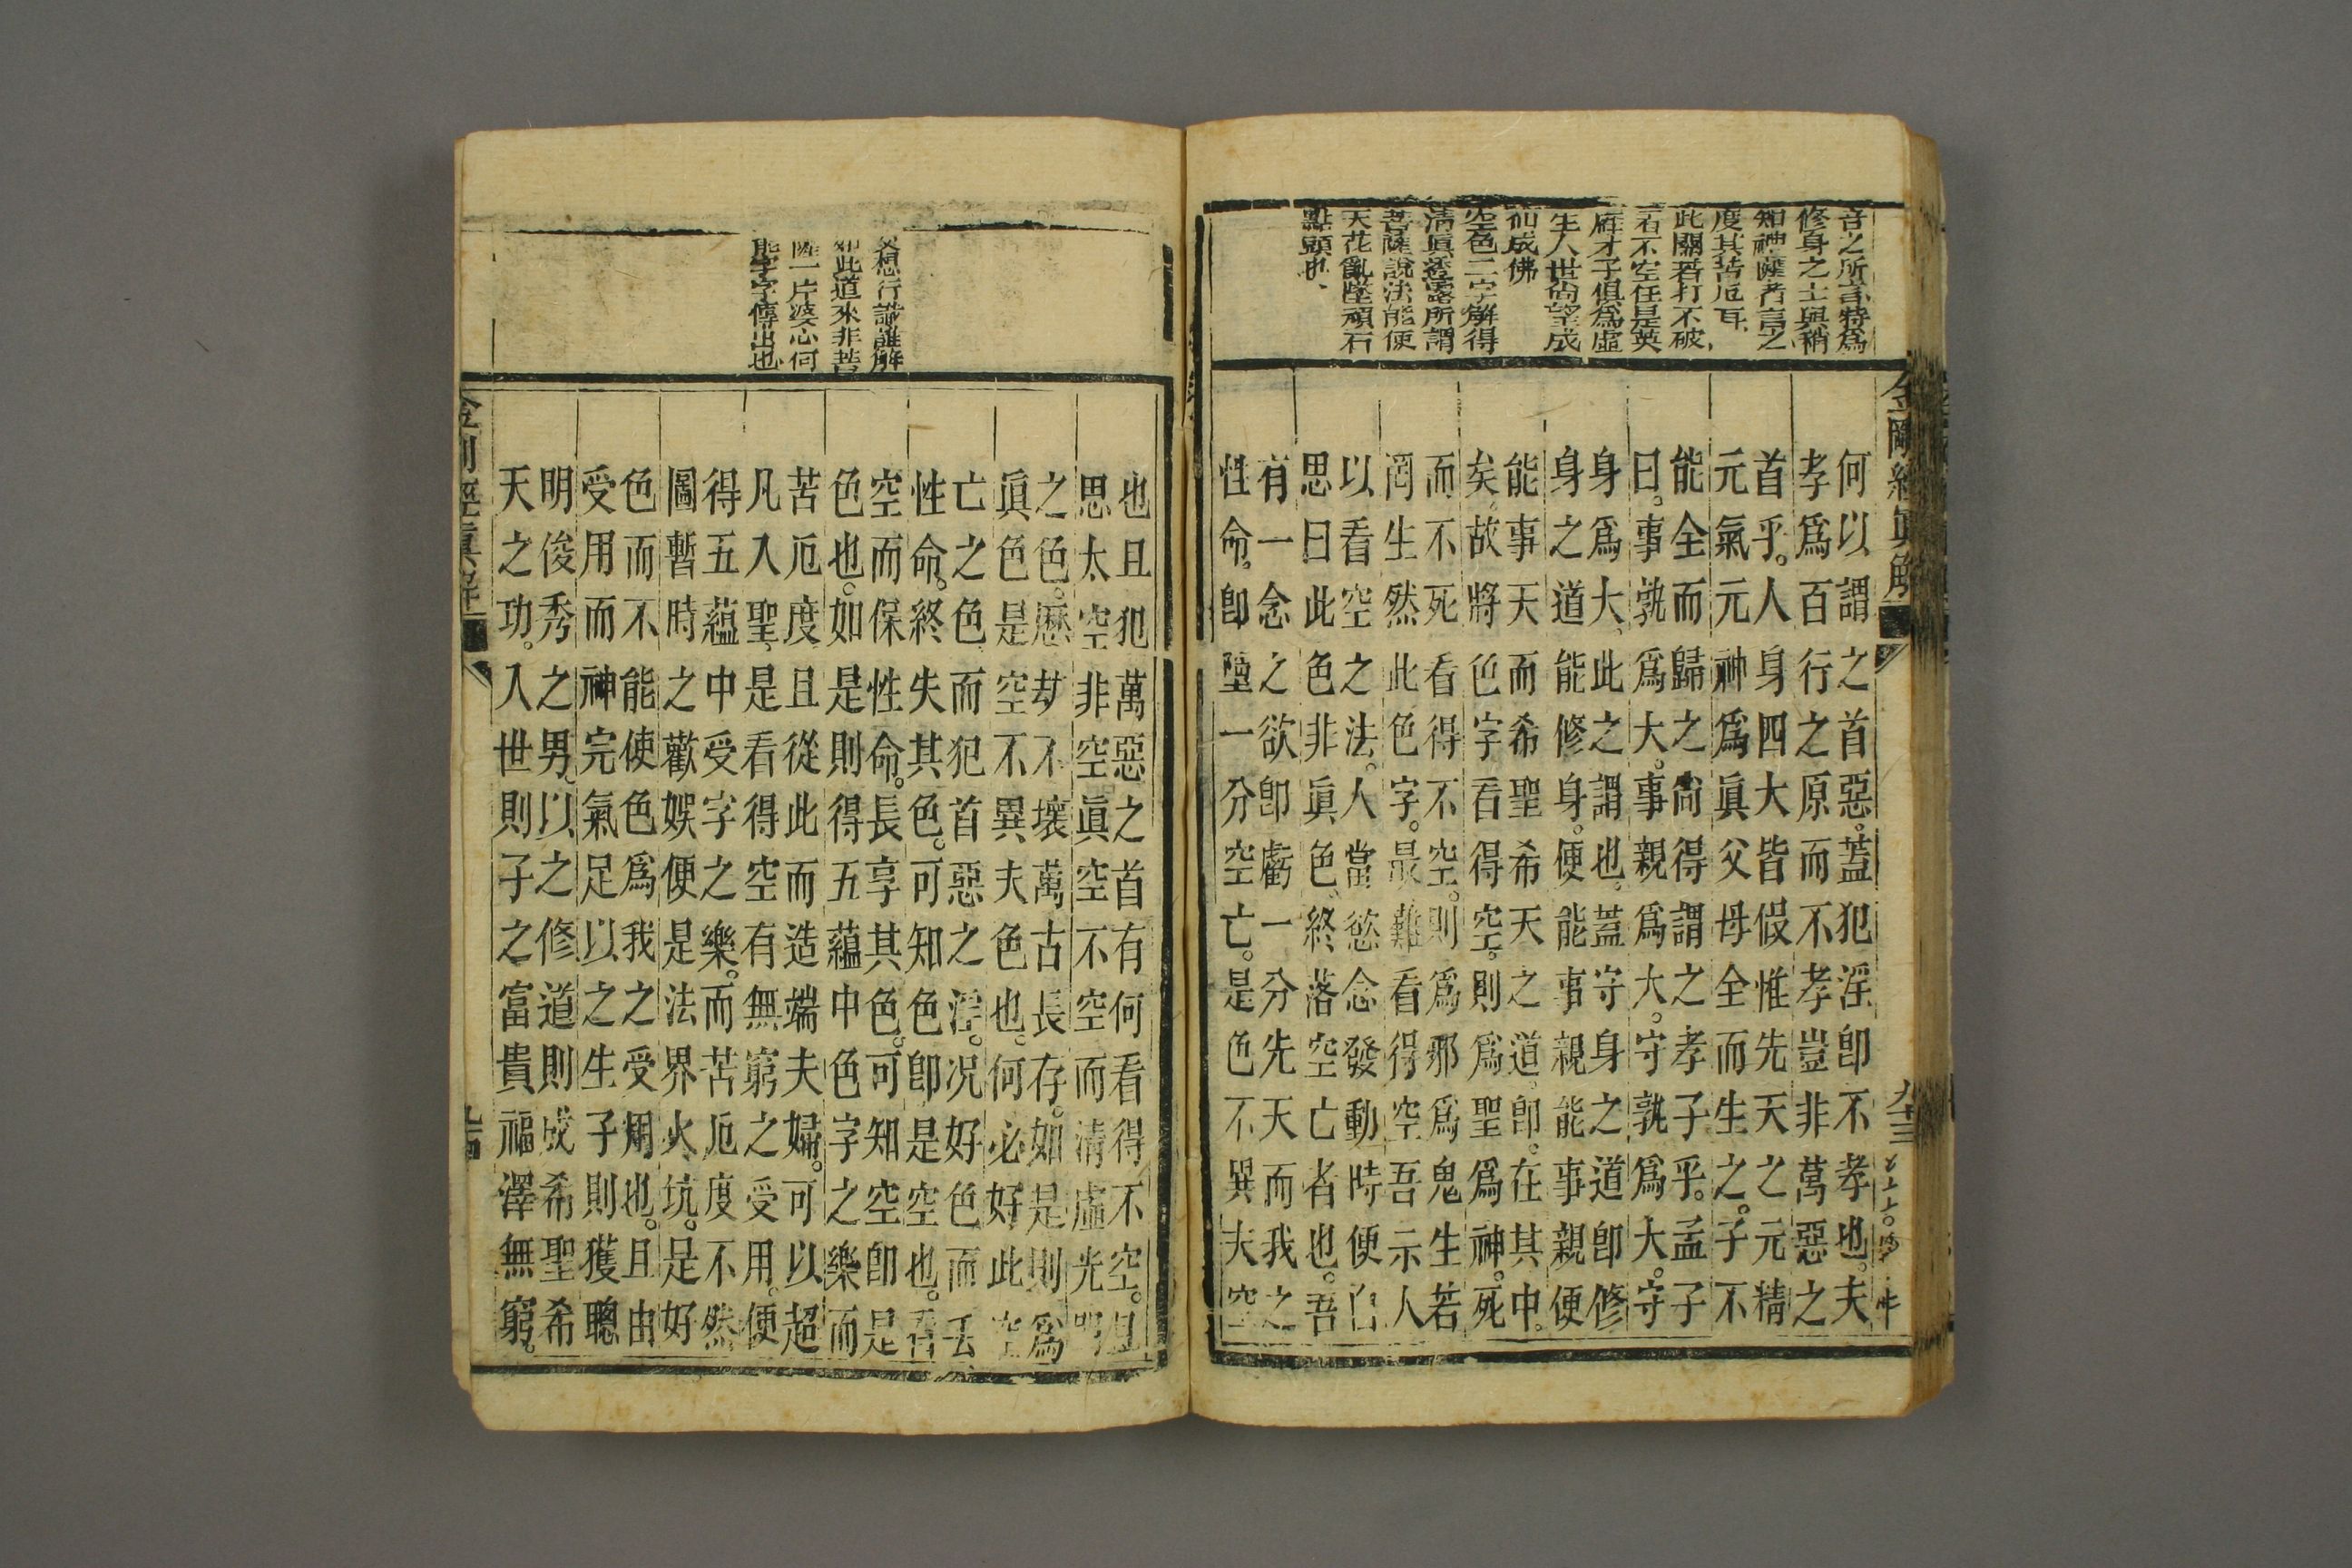 音之所言特爲
修身之士與稍
知神薩者言之
度其苦厄耳
此關若打不破
看不空任是英
雄才子俱爲虛
生人世尚望成
仙成佛
空色二字解得
清眞透露所謂
菩薩說法能使
天花亂墜頑石
點頭也
何以謂之首惡。蓋犯淫即不孝也。夫
孝爲百行之原而不孝豈非萬惡之
首乎。人身四大皆假惟先天之元精
元氣元神爲眞父母全而生之。子不
能全而歸之尚得謂之孝子乎。孟子
曰。事孰爲大。事親爲大。守孰爲大。守
身爲大、此之謂也。蓋守身之道即修
身之道能修身。便能事親能事親便
能事天而希聖希天之道。即在其中。
矣故將色字看得空。則爲聖爲神。死
而不死看得不空。則爲邪爲鬼生若
罔生然此色字。最難看得空吾示人
以看空之法。人當慾念發動時便自
思曰此色非眞色終落空亡者也。吾
有一念之欲卽虧一分先天而我之
性命。卽墮一分空亡。是色不異夫空
金剛經眞解
九十三
也且犯萬惡之首有何看得不空。且
思太空非空眞空不空而清虛光明
之色。歷劫不壞萬古長存。如是則爲
眞色是空不異夫色也。何必好此空
亡之色而犯首惡之淫。況好色而丟
性命。終失其色。可知色卽是空也。看
空而保性命。長享其色。可知空卽是
色也。如是則得五蘊中色字之樂而
苦厄度且從此而造端夫婦。可以超
凡入聖、是看得空有無窮之受用。便
得五蘊中受字之樂。而苦厄度不然
圖暫時之歡娛便是法界火坑。足好
色而不能使色爲我之受用也。且由
受用而神完氣足以之生子則獲聰
明俊秀之男。以之修道則成希聖希
天之功。入世則子之富貴福澤無窮。
想行識誰解
此道來非菩
薩一片婆心何
能字字傳出也